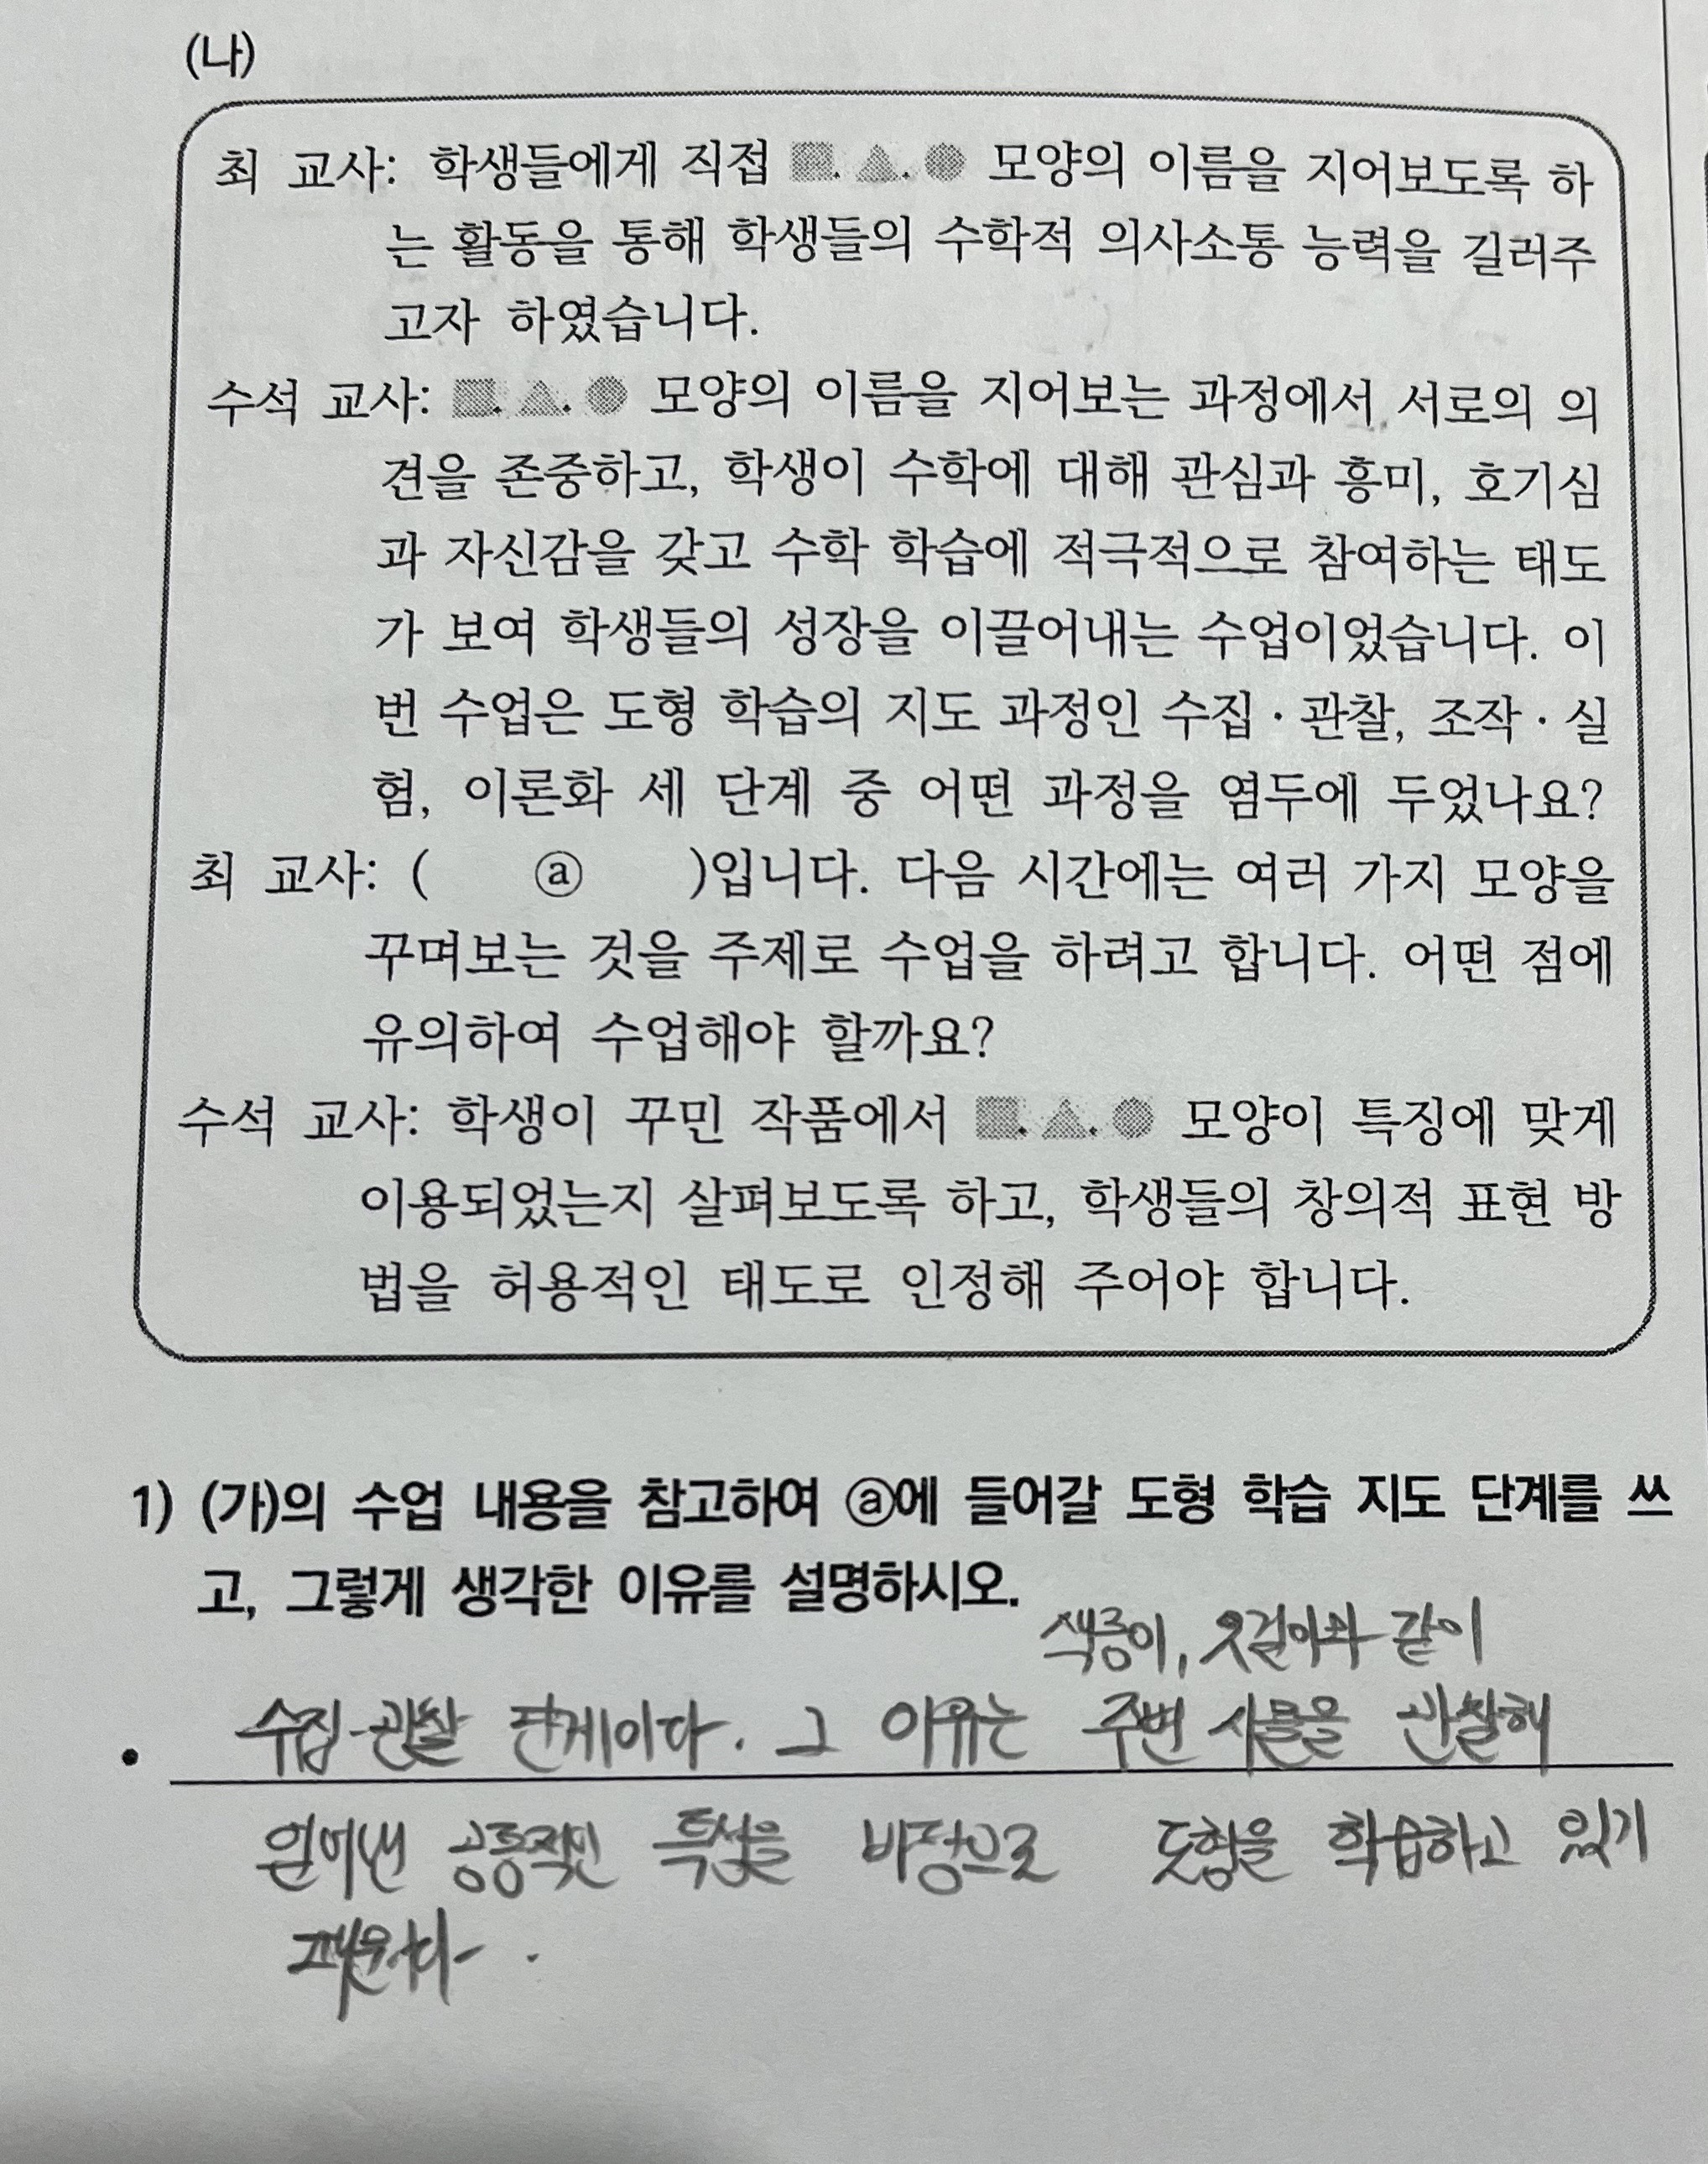 (나)
최 교사: 학생들에게 직접 모양의 이름을 지어보도록 하
는 활동을 통해 학생들의 수학적 의사소통 능력을 길러주
고자 하였습니다.
수석 교사: 모양의 이름을 지어보는 과정에서 서로의 의
견을 존중하고, 학생이 수학에 대해 관심과 흥미, 호기심
과 자신감을 갖고 수학 학습에 적극적으로 참여하는 태도
가 보여 학생들의 성장을 이끌어내는 수업이었습니다. 이
번 수업은 도형 학습의 지도 과정인 수집·관찰, 조작·실
험, 이론화 세 단계 중 어떤 과정을 염두에 두었나요?
최 교사: ( ⓐ )입니다. 다음 시간에는 여러 가지 모양을
꾸며보는 것을 주제로 수업을 하려고 합니다. 어떤 점에
유의하여 수업해야 할까요?
수석 교사: 학생이 꾸민 작품에서 모양이 특징에 맞게
이용되었는지 살펴보도록 하고, 학생들의 창의적 표현 방
법을 허용적인 태도로 인정해 주어야 합니다.
1) (가)의 수업 내용을 참고하여 ⓐ에 들어갈 도형 학습 지도 단계를 쓰
고, 그렇게 생각한 이유를 설명하시오.
색종이, 옷걸이와 같이
• 수집-관찰 단계이다. 그 이유는 주변 사물을 관찰해
얻어낸 공통적인 특성을 바탕으로 도형을 학습하고 있기
때문이다.